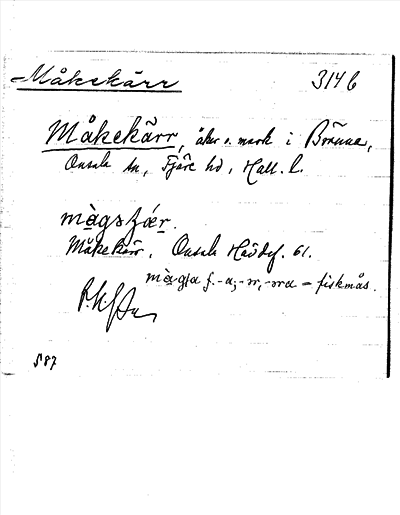 Måkekärr 314 b
Måkekärr, åker o. mark i Brånne,
Onsala sn, Fjäre hd, Hall. l.
màgsɟær.
Måkekärr, Onsala Hävdef. 61.
màgɟa f. -a; -r, -rna = fiskmås.
87